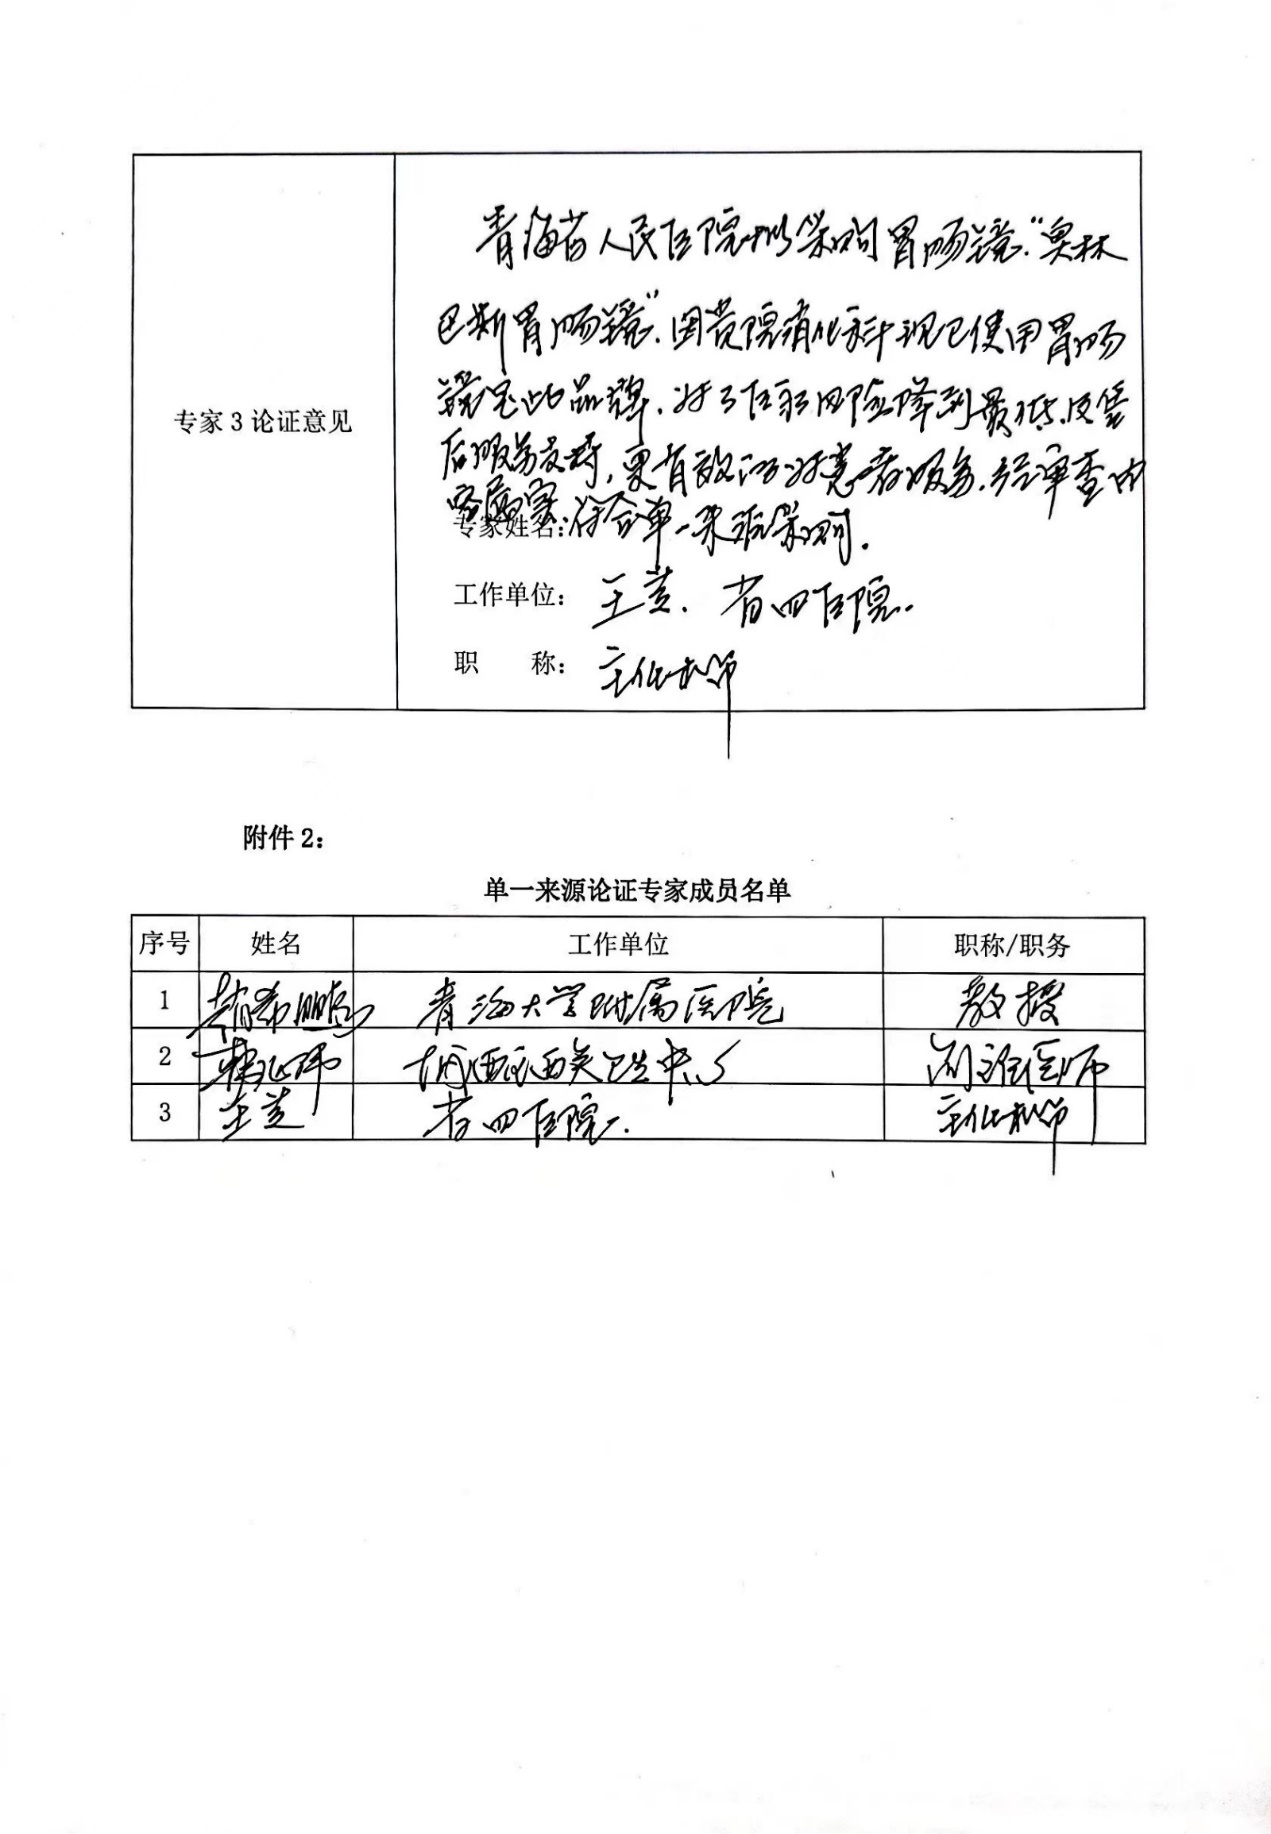 青海省人民医院拟采购胃肠镜."奥林
巴斯胃肠镜".因贵院消化科现已使用胃肠
镜是此品牌.为了医疗风险降到最低.及售
专家3论证意见
后服务支持,更有效的为患者服务.经审查内
容属实
专家姓名:符合单一来源采购.
工作单位: 王 省四医院.
职 称: 主任技师
附件2:
单一来源论证专家成员名单
序号 姓名 工作单位 职称/职务
1 希鹏 青海大学附属医院 教授
2 城西区西关卫生中心 副主任医师
3 王 省四医院. 主任技师